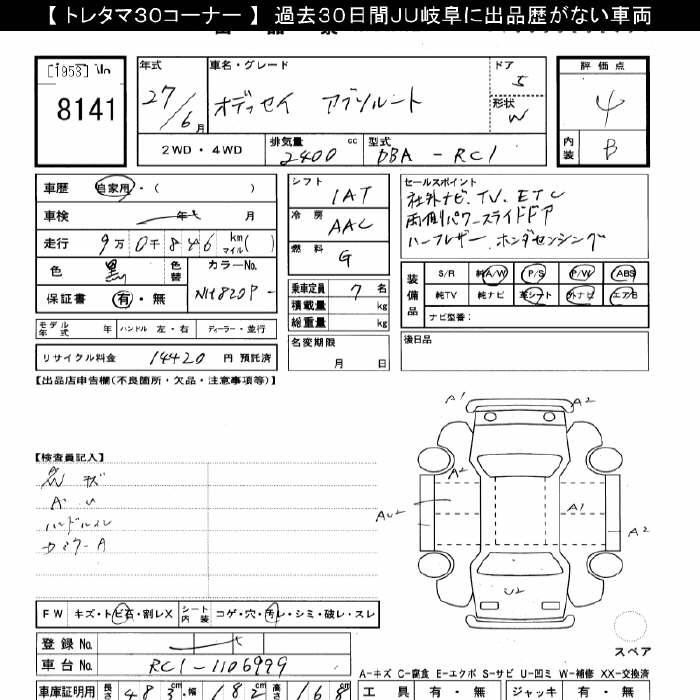 【 トレタマ30コーナー 】 過去30日間JU岐阜に出品歴がない車両
[1953]
8141
年式 車名・グレード ドア 評価点
27/6月 オデッセイ アブソルート 5 4
形状 W
2WD・4WD 排気量 2400 cc 型式 DBA - RC1 内装 B
車歴 自家用・( )
車検 年 月
走行 9万0千846 km マイル( )
色 黒 色替 カラーNo. NH820P -
保証書 有・無
モデル年式 年 ハンドル 左・右 ディーラー・並行
リサイクル料金 14420 円 預託済
シフト IAT
冷房 AAC
燃料 G
乗車定員 7 名
積載量 kg
総重量 kg
名変期限
月 日
セールスポイント
社外ナビ、TV、ETC
両側パワースライドドア
ハーフレザー、ホンダセンシング
装備品 S/R 純A/W P/S P/W ABS
純TV 純ナビ 革シート 外ナビ エアB
ナビ型番:
後日品
【出品店申告欄(不良箇所・欠品・注意事項等)】
【検査員記入】
A U
A1 A2
A2
AU2 A1 A2
U2
スペア
FW キズ・トビ石・割レX シート内装 コゲ・穴・汚レ・シミ・破レ・スレ
登録No.
車台No. RC1-1106999
A-キズ C-腐食 E-エクボ S-サビ U-凹ミ W-補修 XX-交換済
車庫証明用 長さ 483 cm・幅 182 cm 高さ 168 cm
工具 有・無 ジャッキ 有・無